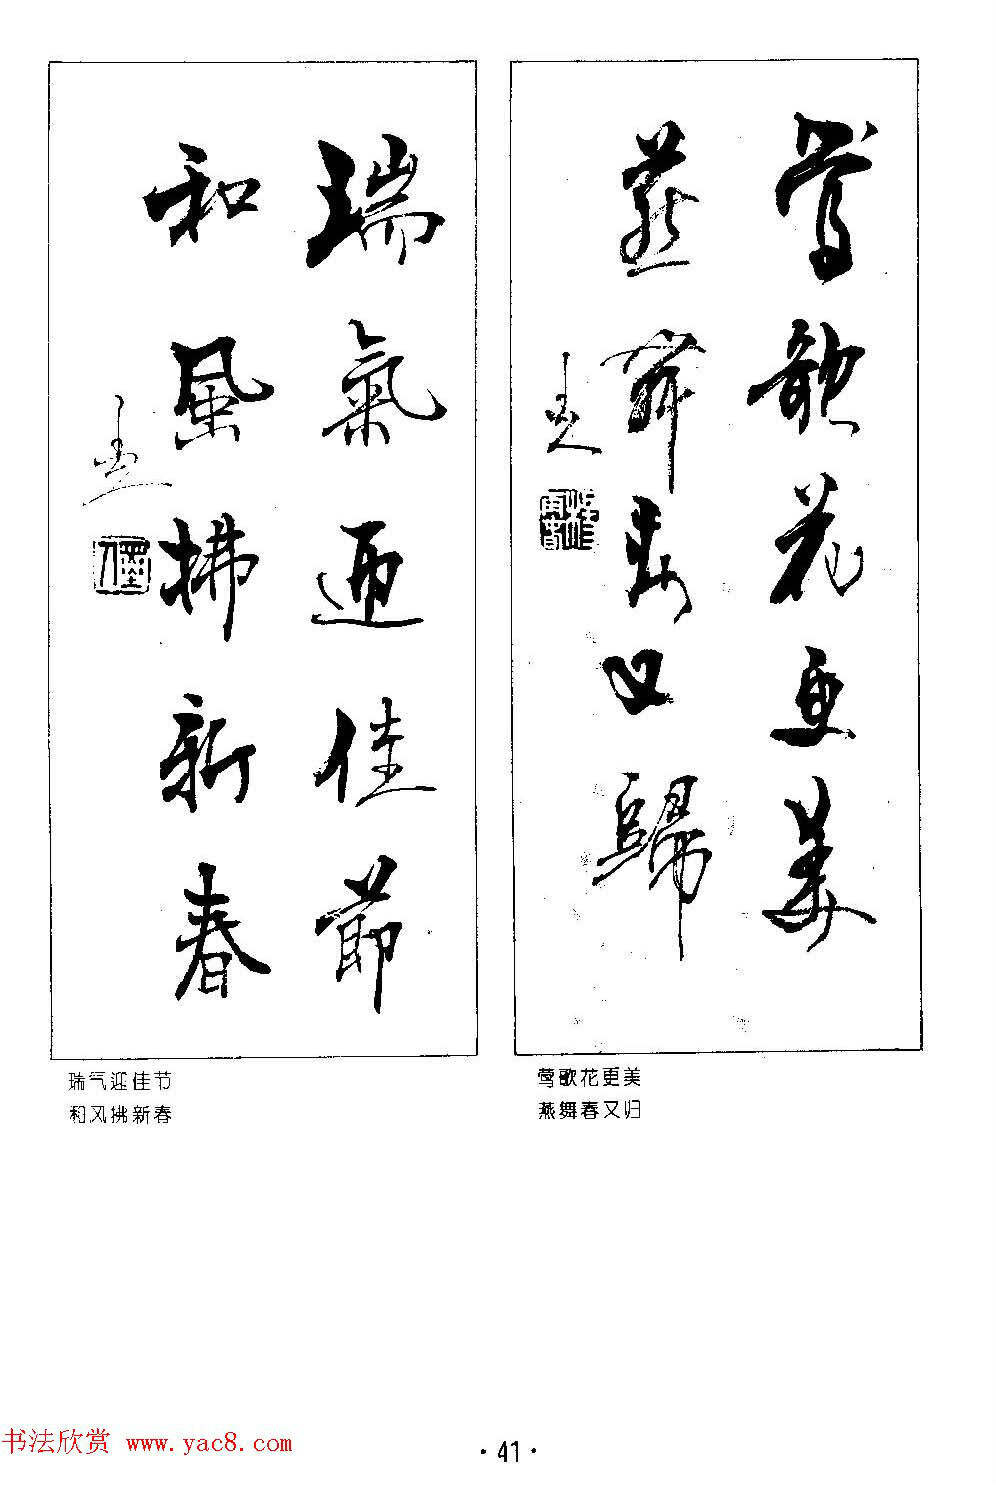 鶯歌花更美
燕舞春又歸
瑞氣迎佳節
和風拂新春
莺歌花更美
燕舞春又归
瑞气迎佳节
和风拂新春
书法欣赏 www.yac8.com
·41·